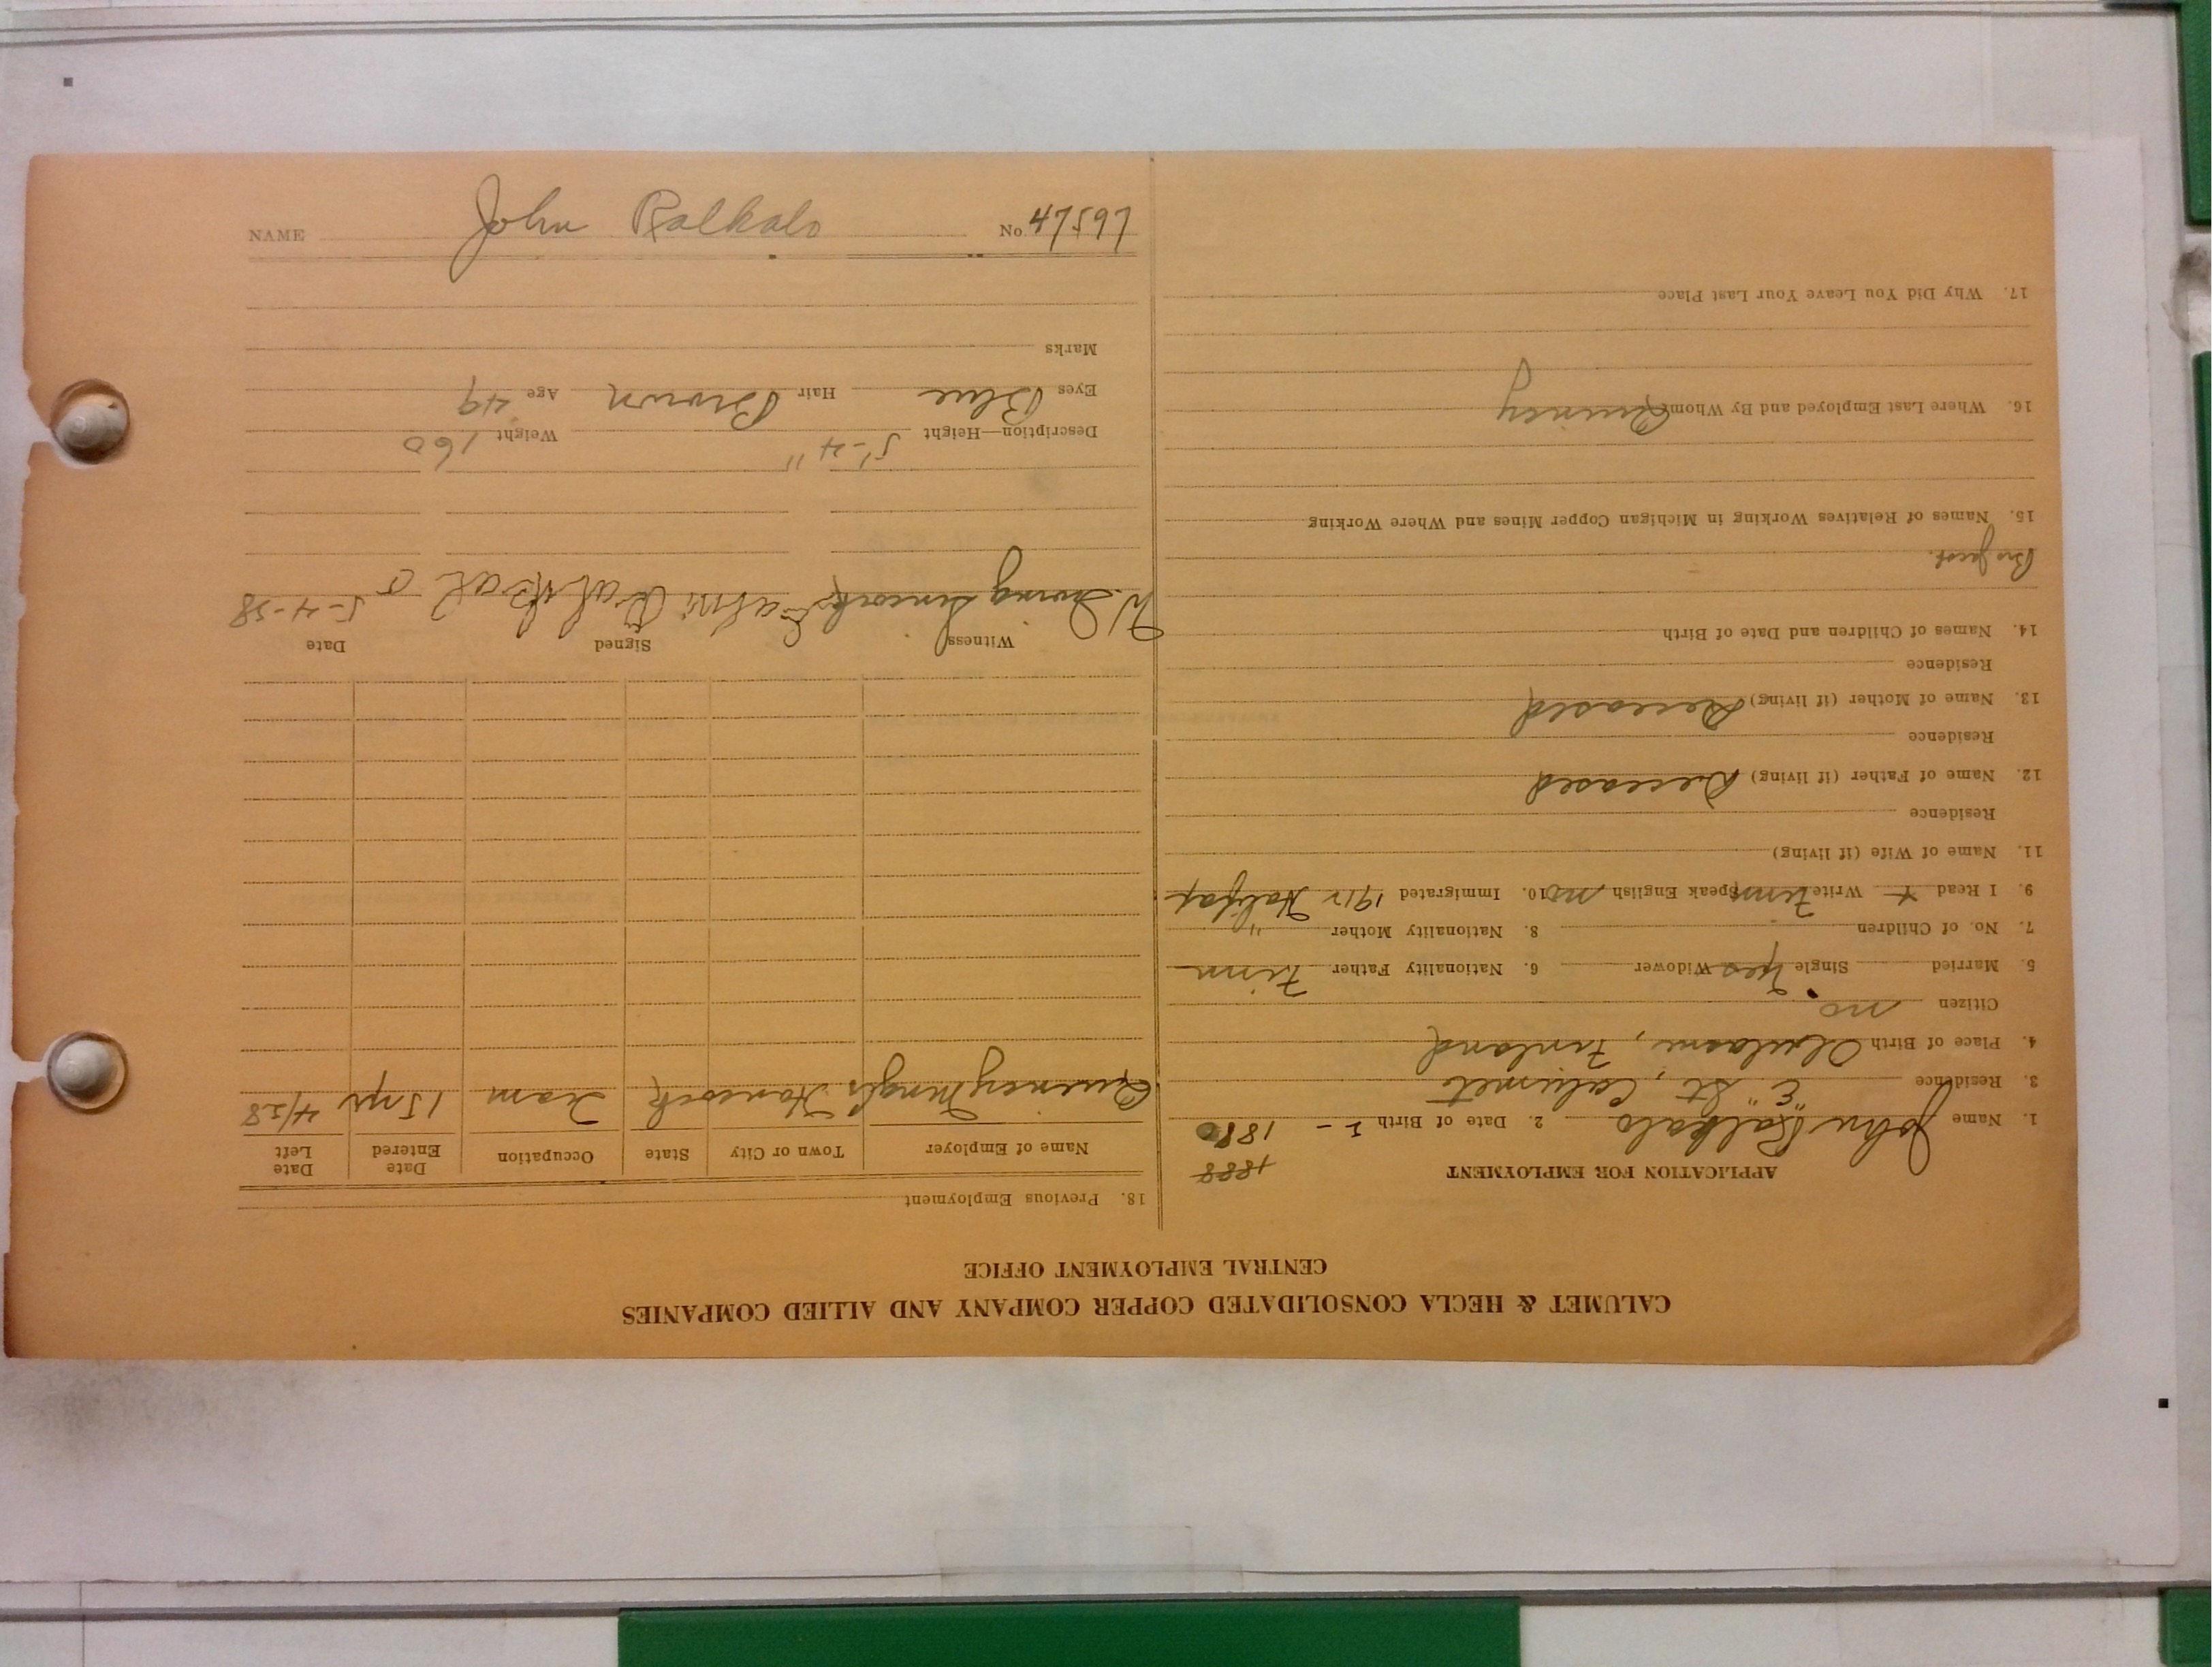 CALUMET & HECLA CONSOLIDATED COPPER COMPANY AND ALLIED COMPANIES
CENTRAL EMPLOYMENT OFFICE
APPLICATION FOR EMPLOYMENT
1888
1. Name John Ralkalo 2. Date of Birth 1880
3. Residence "E" St, Calumet
4. Place of Birth Finland
Citizen no
5. Married Single Yes Widower 6. Nationality Father Finn
7. No. of Children 8. Nationality Mother "
9. I Read + Write Finn Speak English no 10. Immigrated 1912 Halifax
11. Name of Wife (if living)
Residence
12. Name of Father (if living) Deceased
Residence
13. Name of Mother (if living) Deceased
Residence
14. Names of Children and Date of Birth
15. Names of Relatives Working in Michigan Copper Mines and Where Working
16. Where Last Employed and By Whom Quincy
17. Why Did You Leave Your Last Place
18. Previous Employment
Name of Employer Town or City State Occupation Date Entered Date Left
Quincy Hancock Tram 15 yr 4/28
Witness Signed Date
W. Irving 5-4-38
Description—Height 5'-4" Weight 160
Eyes Blue Hair Brown Age 49
Marks
NAME John Ralkalo No. 47597